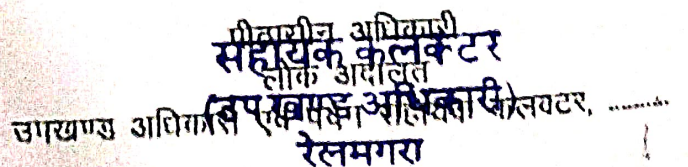 पीठासीन अधिकारी
सहायक कलक्टर
लोक अदालत
(उपखण्ड अधिकारी)
उपखण्ड अधिकारी एवं सहायक कलक्टर, .........
रेलमगरा